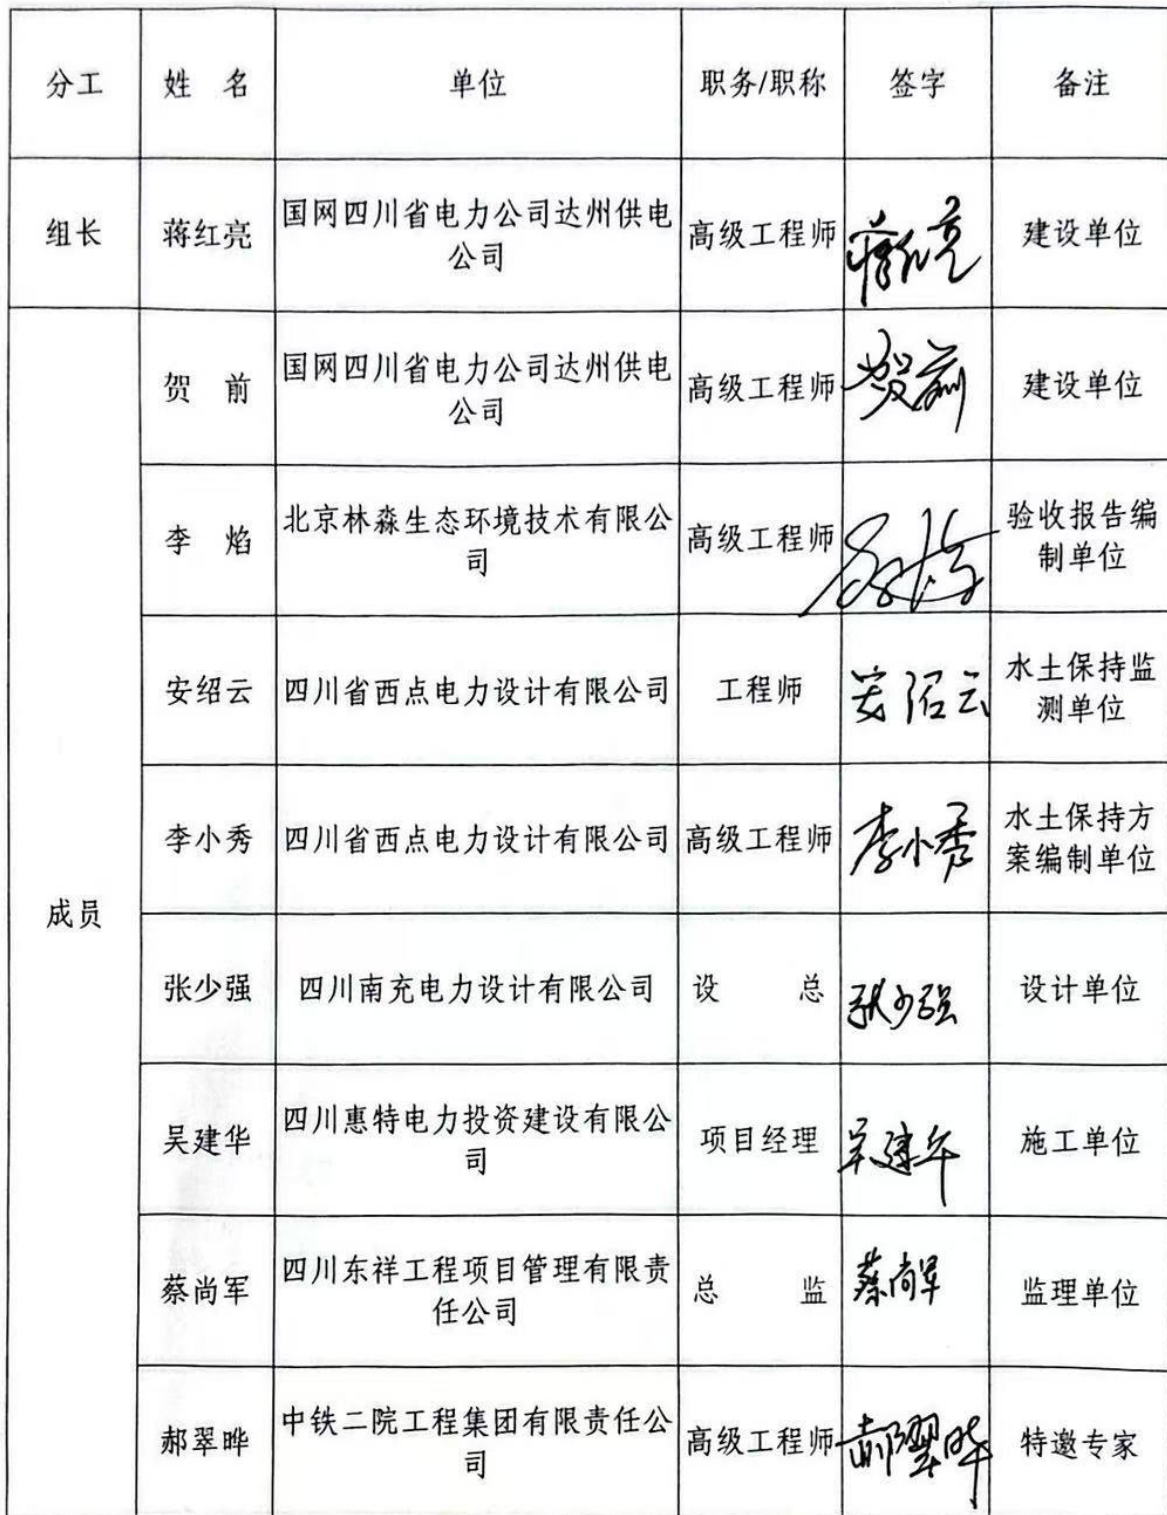 分工 姓 名 单位 职务/职称 签字 备注
组长 蒋红亮 国网四川省电力公司达州供电 高级工程师 蒋红亮 建设单位
公司
成员
贺 前 国网四川省电力公司达州供电 高级工程师 贺前 建设单位
公司
李 焰 北京林淼生态环境技术有限公 高级工程师 验收报告编
司 制单位
安绍云 四川省西点电力设计有限公司 工程师 安绍云 水土保持监
测单位
李小秀 四川省西点电力设计有限公司 高级工程师 李小秀 水土保持方
案编制单位
张少强 四川南充电力设计有限公司 设 总 张少强 设计单位
吴建华 四川惠特电力投资建设有限公 项目经理 吴建华 施工单位
司
蔡尚军 四川东祥工程项目管理有限责 总 监 蔡尚军 监理单位
任公司
郝翠晔 中铁二院工程集团有限责任公 高级工程师 郝翠晔 特邀专家
司